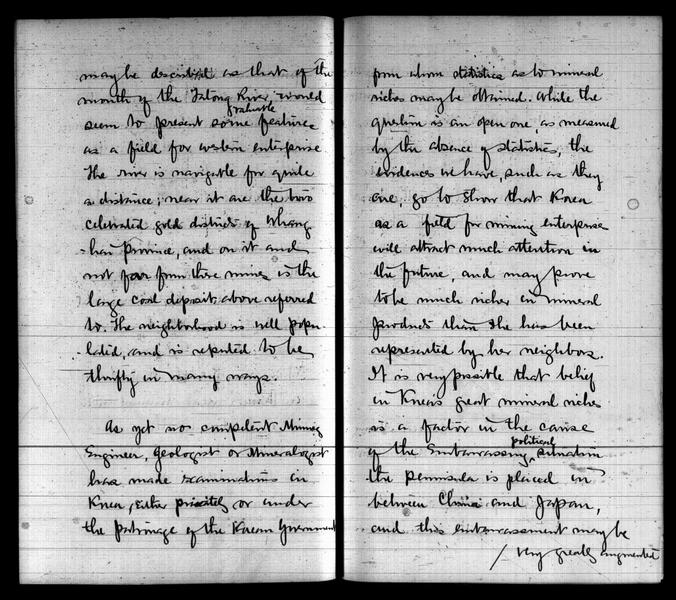 may be described as that of the
mouth of the Tatong River would
seem to present some valuable features
as a field for western enterprise
The river is navigable for quite
a distance; near it are the two
celebrated gold districts of Whang
hai Province, and on it and
not far from these mines is the
large coal deposit, above referred
to. The neighborhood is well popu-
lated, and is reputed to be
thrifty in many ways.
As yet no competent Mining
Engineer, Geologist or Mineralogist
has made examinations in
Korea, either privately or under
the patronage of the Korean Government
from whom statistics as to mineral
riches may be obtained. While the
question is an open one, as measured
by the absence of statistics, the
evidences we have, such as they
are, go to show that Korea
as a field for mining enterprise
will attract much attention in
the future, and may prove
to be much richer in mineral
products than she has been
represented by her neighbors.
It is very possible that belief
in Korea's great mineral riches
is a factor in the cause
of the Embarrassing political situation
the peninsula is placed in
between China and Japan,
and this embarrassment may be
/ very greatly augmented